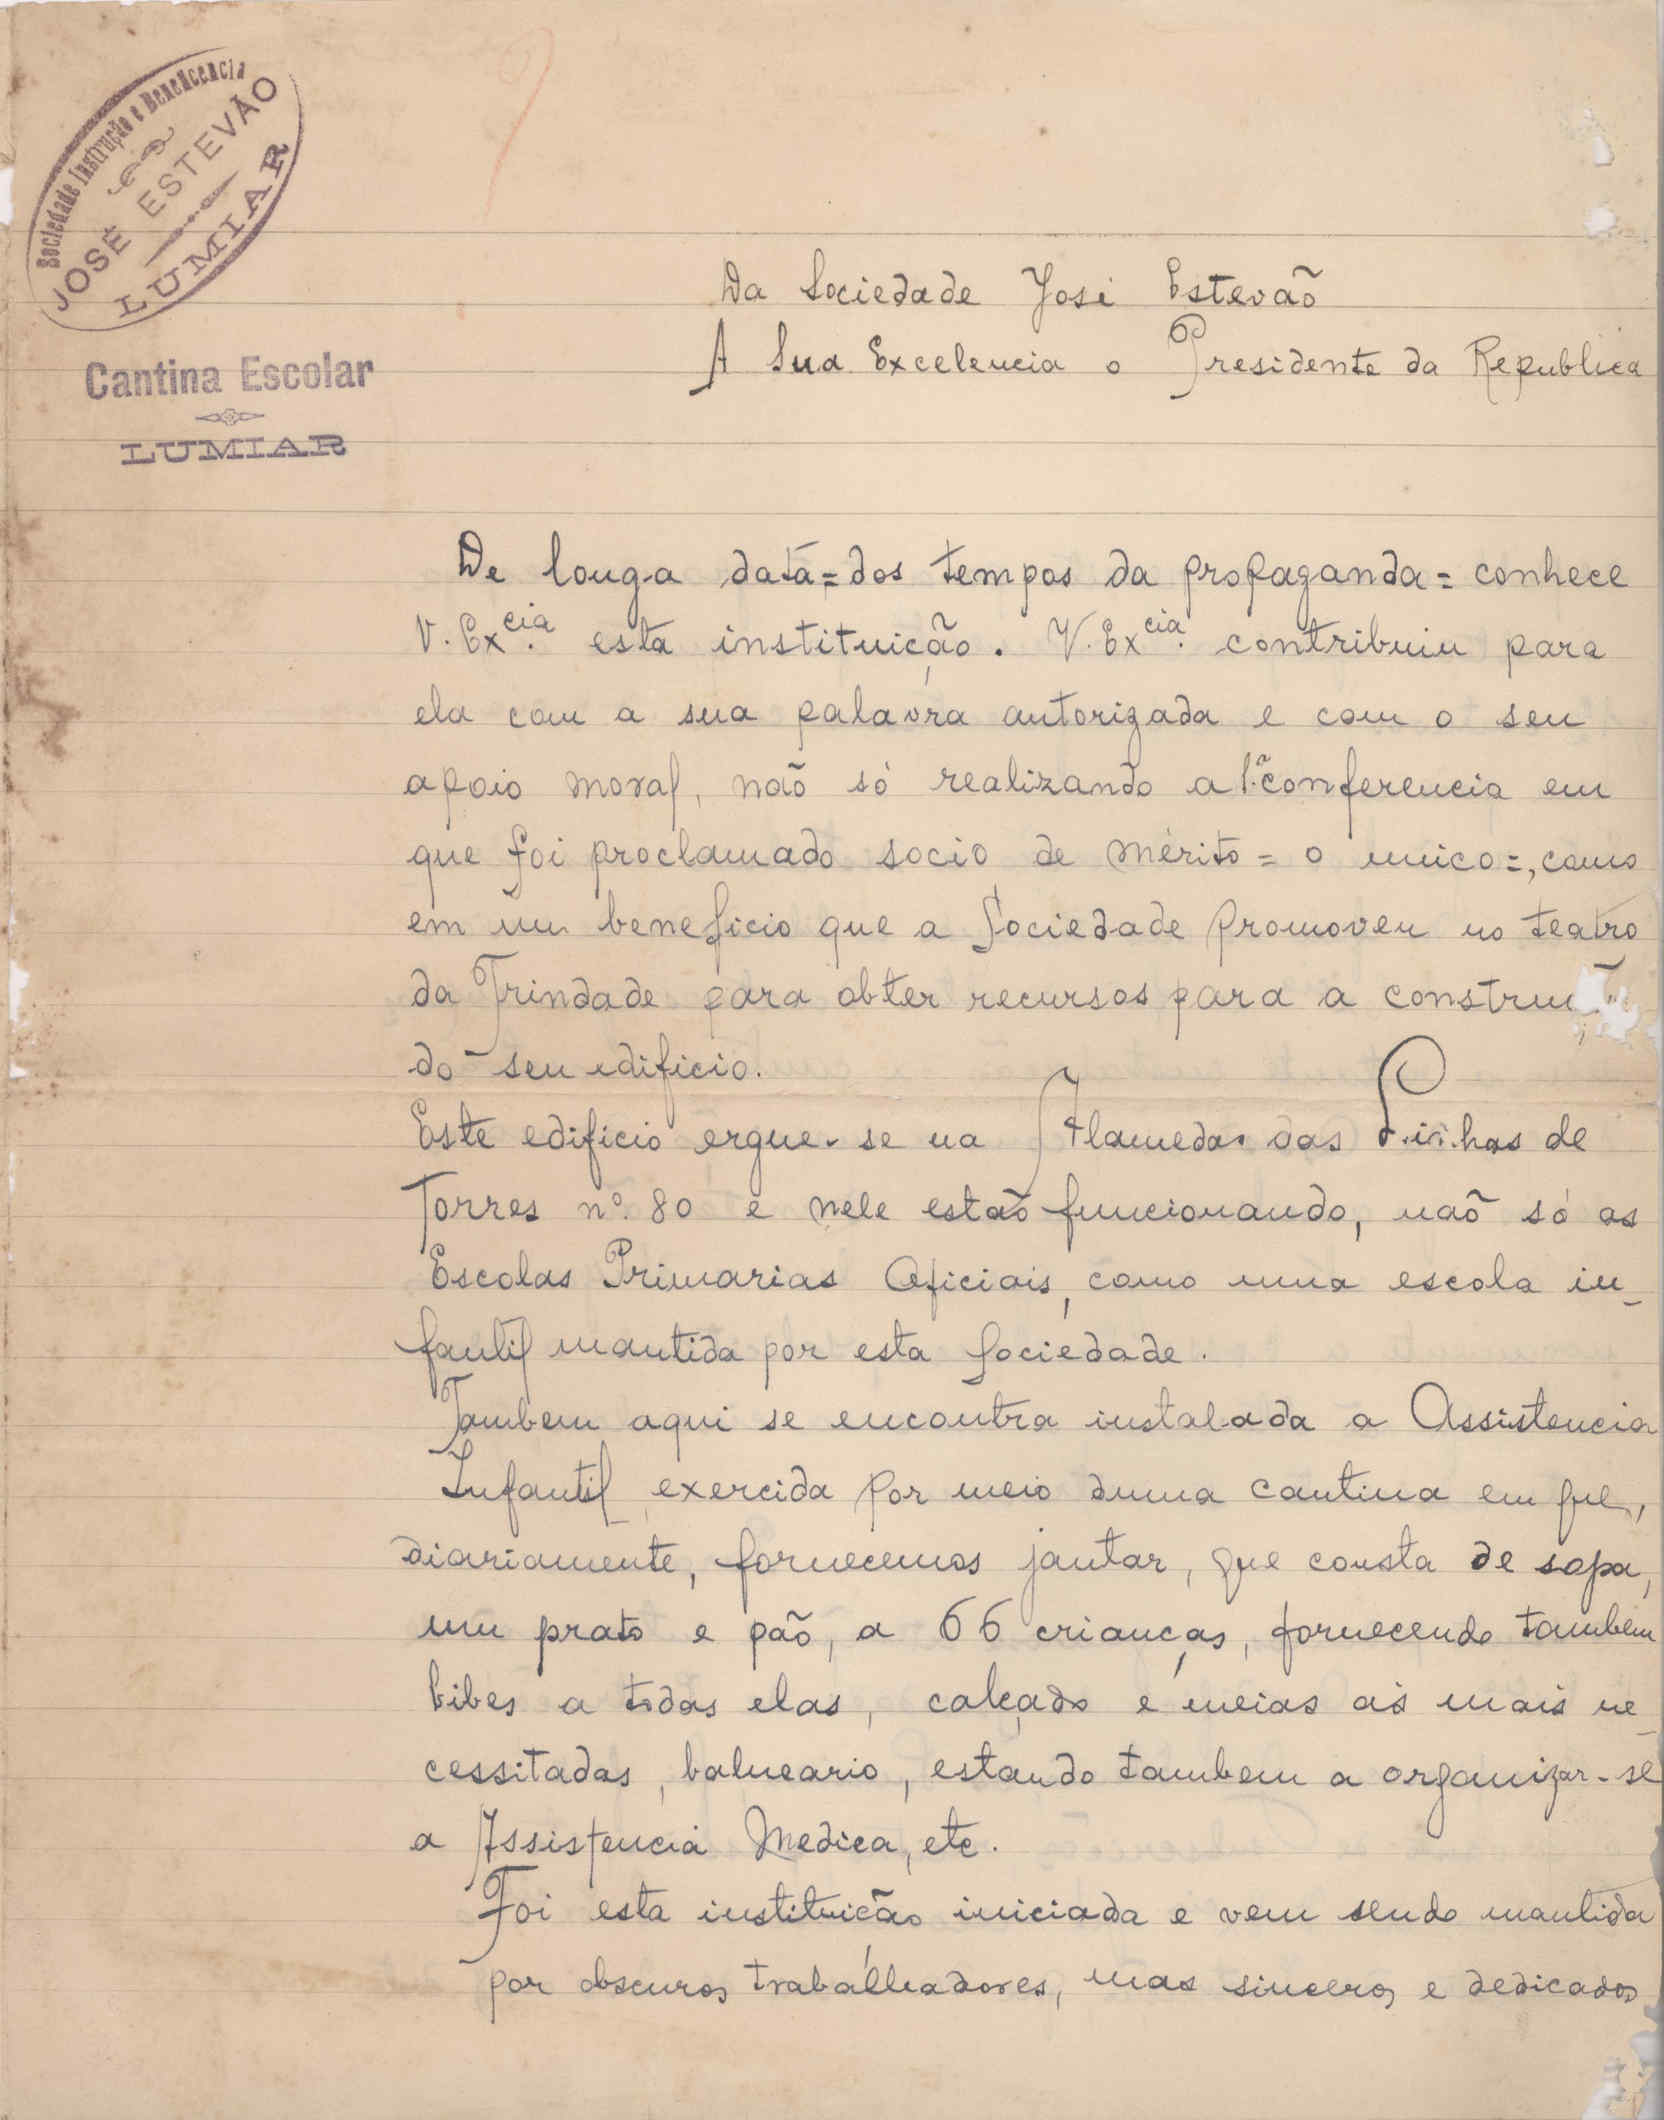 Sociedade Instrução e Beneficencia
JOSÉ ESTEVÃO
LUMIAR
Cantina Escolar
LUMIAR
Da Sociedade José Estevão
A Sua Excelencia o Presidente da Republica
De longa data = dos tempos da propaganda = conhece
V. Ex.cia esta instituição. V. Ex.cia contribuiu para
ela com a sua palavra autorizada e com o seu
apoio moral, não só realizando a 1.ª conferencia em
que foi proclamado socio de mérito = o unico =, como
em um beneficio que a Sociedade promoveu no teatro
da Trindade para obter recursos para a constru
do seu edificio.
Este edificio ergue-se na Alameda das Linhas de
Torres nº. 80 e nele estão funcionando, não só as
Escolas Primarias Oficiais, como uma escola in-
fantil mantida por esta Sociedade.
Tambem aqui se encontra instalada a Assistencia
Infantil exercida por meio duma cantina em que,
diariamente, fornecemos jantar, que consta de sopa,
um prato e pão, a 66 crianças, fornecendo tambem
bibes a todas elas, calçado e meias ás mais ne-
cessitadas, balneario, estando tambem a organizar-se
a Assistencia Medica, etc.
Foi esta instituição iniciada e vem sendo mantida
por obscuros trabalhadores, mas sinceros e dedicados